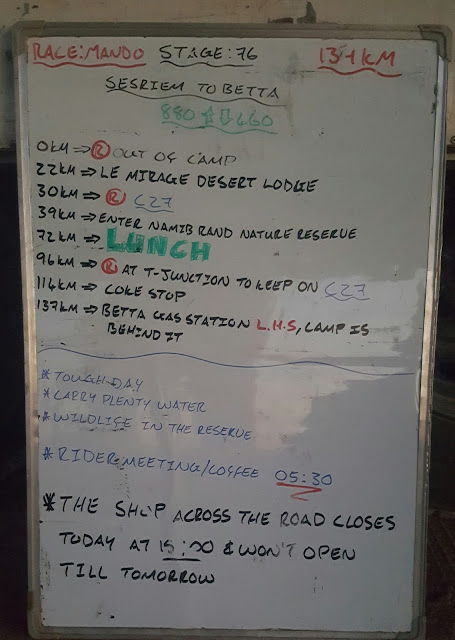 RACE: MANDO STAGE: 76 137KM
SESRIEM TO BETTA
880 ⇧⇩ 460
0KM ⇒ Ⓡ OUT OF CAMP
22KM ⇒ LE MIRAGE DESERT LODGE
30KM ⇒ Ⓡ C27
39KM ⇒ ENTER NAMIB RAND NATURE RESERVE
72KM ⇒ LUNCH
96KM ⇒ Ⓡ AT T-JUNCTION TO KEEP ON C27
114KM ⇒ COKE STOP
137KM ⇒ BETTA GAS STATION L.H.S, CAMP IS
BEHIND IT
* TOUGH DAY
* CARRY PLENTY WATER
* WILDLIFE IN THE RESERVE
* RIDER MEETING/COFFEE 05:30
* THE SHOP ACROSS THE ROAD CLOSES
TODAY AT 15:00 & WON'T OPEN
TILL TOMORROW